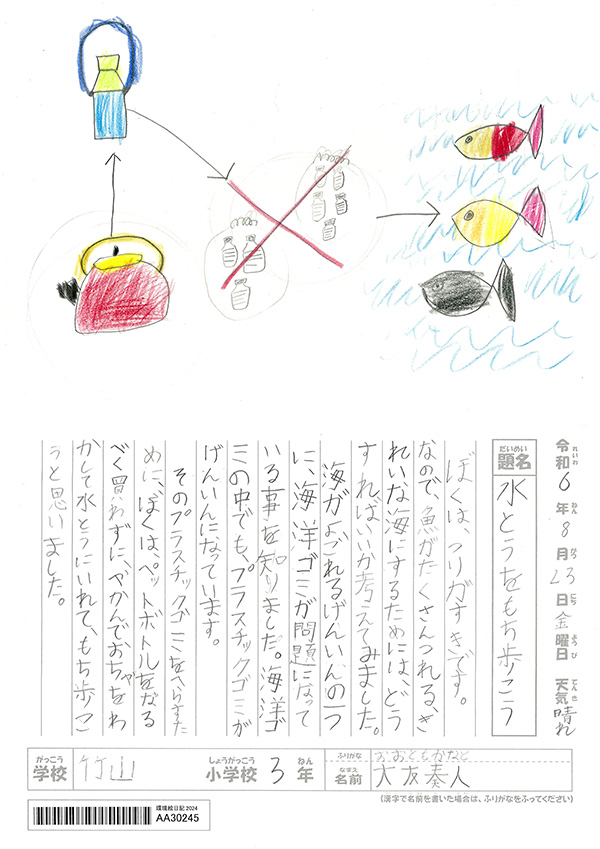 令和6年8月23日金曜日 天気晴れ
れいわ ねん がつ にち ようび てんき
だいめい
題名 水とうをもち歩こう
ぼくは、つりがすきです。
なので、魚がたくさんつれる、き
れいな海にするためには、どう
すればいいか考えてみました。
海がよごれるげんいんの一つ
に、海洋ゴミが問題になって
いる事を知りました。海洋ゴ
ミの中でも、プラスチックゴミが
げんいんになっています。
そのプラスチックゴミをへらすた
めに、ぼくは、ペットボトルをなる
べく買わずに、やかんでおちゃをわ
かして水とうにいれて、もち歩こ
うと思いました。
がっこう しょうがっこう ねん
学校 竹山 小学校 3年
ふりがな おおともかなと
なまえ
名前 大友奏人
(漢字で名前を書いた場合は、ふりがなをふってください)
環境絵日記2024
AA30245